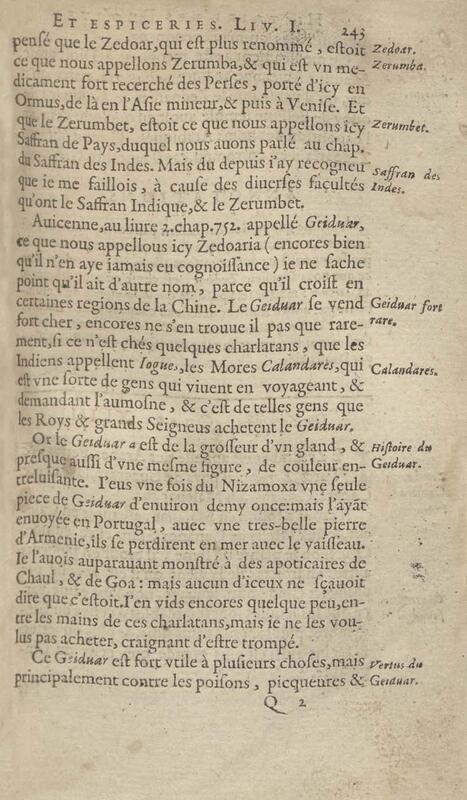 ET ESPICERIES. LIV. I. 243
pensé que le Zedoar, qui eſt plus renommé, eſtoit Zedoar.
ce que nous appellons Zerumba, & qui eſt vn me- Zerumba.
dicament fort recerché des Perſes, porté d'icy en
Ormus, de là en l'Aſie mineur, & puis à Veniſe. Et
que le Zerumbet, eſtoit ce que nous appellons icy Zerumbet.
Saffran de Pays, duquel nous auons parlé au chap.
du Saffran des Indes. Mais du depuis i'ay recogneu Saffran des
que ie me faillois, à cauſe des diuerſes facultés Indes.
qu'ont le Saffran Indique, & le Zerumbet.
Auicenne, au liure 2. chap. 752. appellé Geiduar,
ce que nous appellous icy Zedoaria (encores bien
qu'il n'en aye iamais eu cognoiſſance) ie ne ſache
point qu'il ait d'autre nom, parce qu'il croiſt en
certaines regions de la Chine. Le Geiduar ſe vend Geiduar fort
fort cher, encores ne s'en trouue il pas que rare- rare.
ment, ſi ce n'eſt chés quelques charlatans, que les
Indiens appellent Iogues, les Mores Calandares, qui Calandares.
eſt vne ſorte de gens qui viuent en voyageant, &
demandant l'aumoſne, & c'eſt de telles gens que
les Roys & grands Seigneus achetent le Geiduar.
Or le Geiduar a eſt de la groſſeur d'vn gland, & Hiſtoire du
preſque auſſi d'vne meſme figure, de couleur en- Geiduar.
treluiſante. I'eus vne fois du Nizamoxa vne ſeule
piece de Geiduar d'enuiron demy once: mais l'ayāt
enuoyée en Portugal, auec vne tres-belle pierre
d'Armenie, ils ſe perdirent en mer auec le vaiſſeau.
Ie l'auois auparauant monſtré à des apoticaires de
Chaul, & de Goa: mais aucun d'iceux ne ſçauoit
dire que c'eſtoit. I'en vids encores quelque peu, en-
tre les mains de ces charlatans, mais ie ne les vou-
lus pas acheter, craignant d'eſtre trompé.
Ce Geiduar eſt fort vtile à pluſieurs choſes, mais Vertus du
principalement contre les poiſons, picqueures & Geiduar.
Q 2